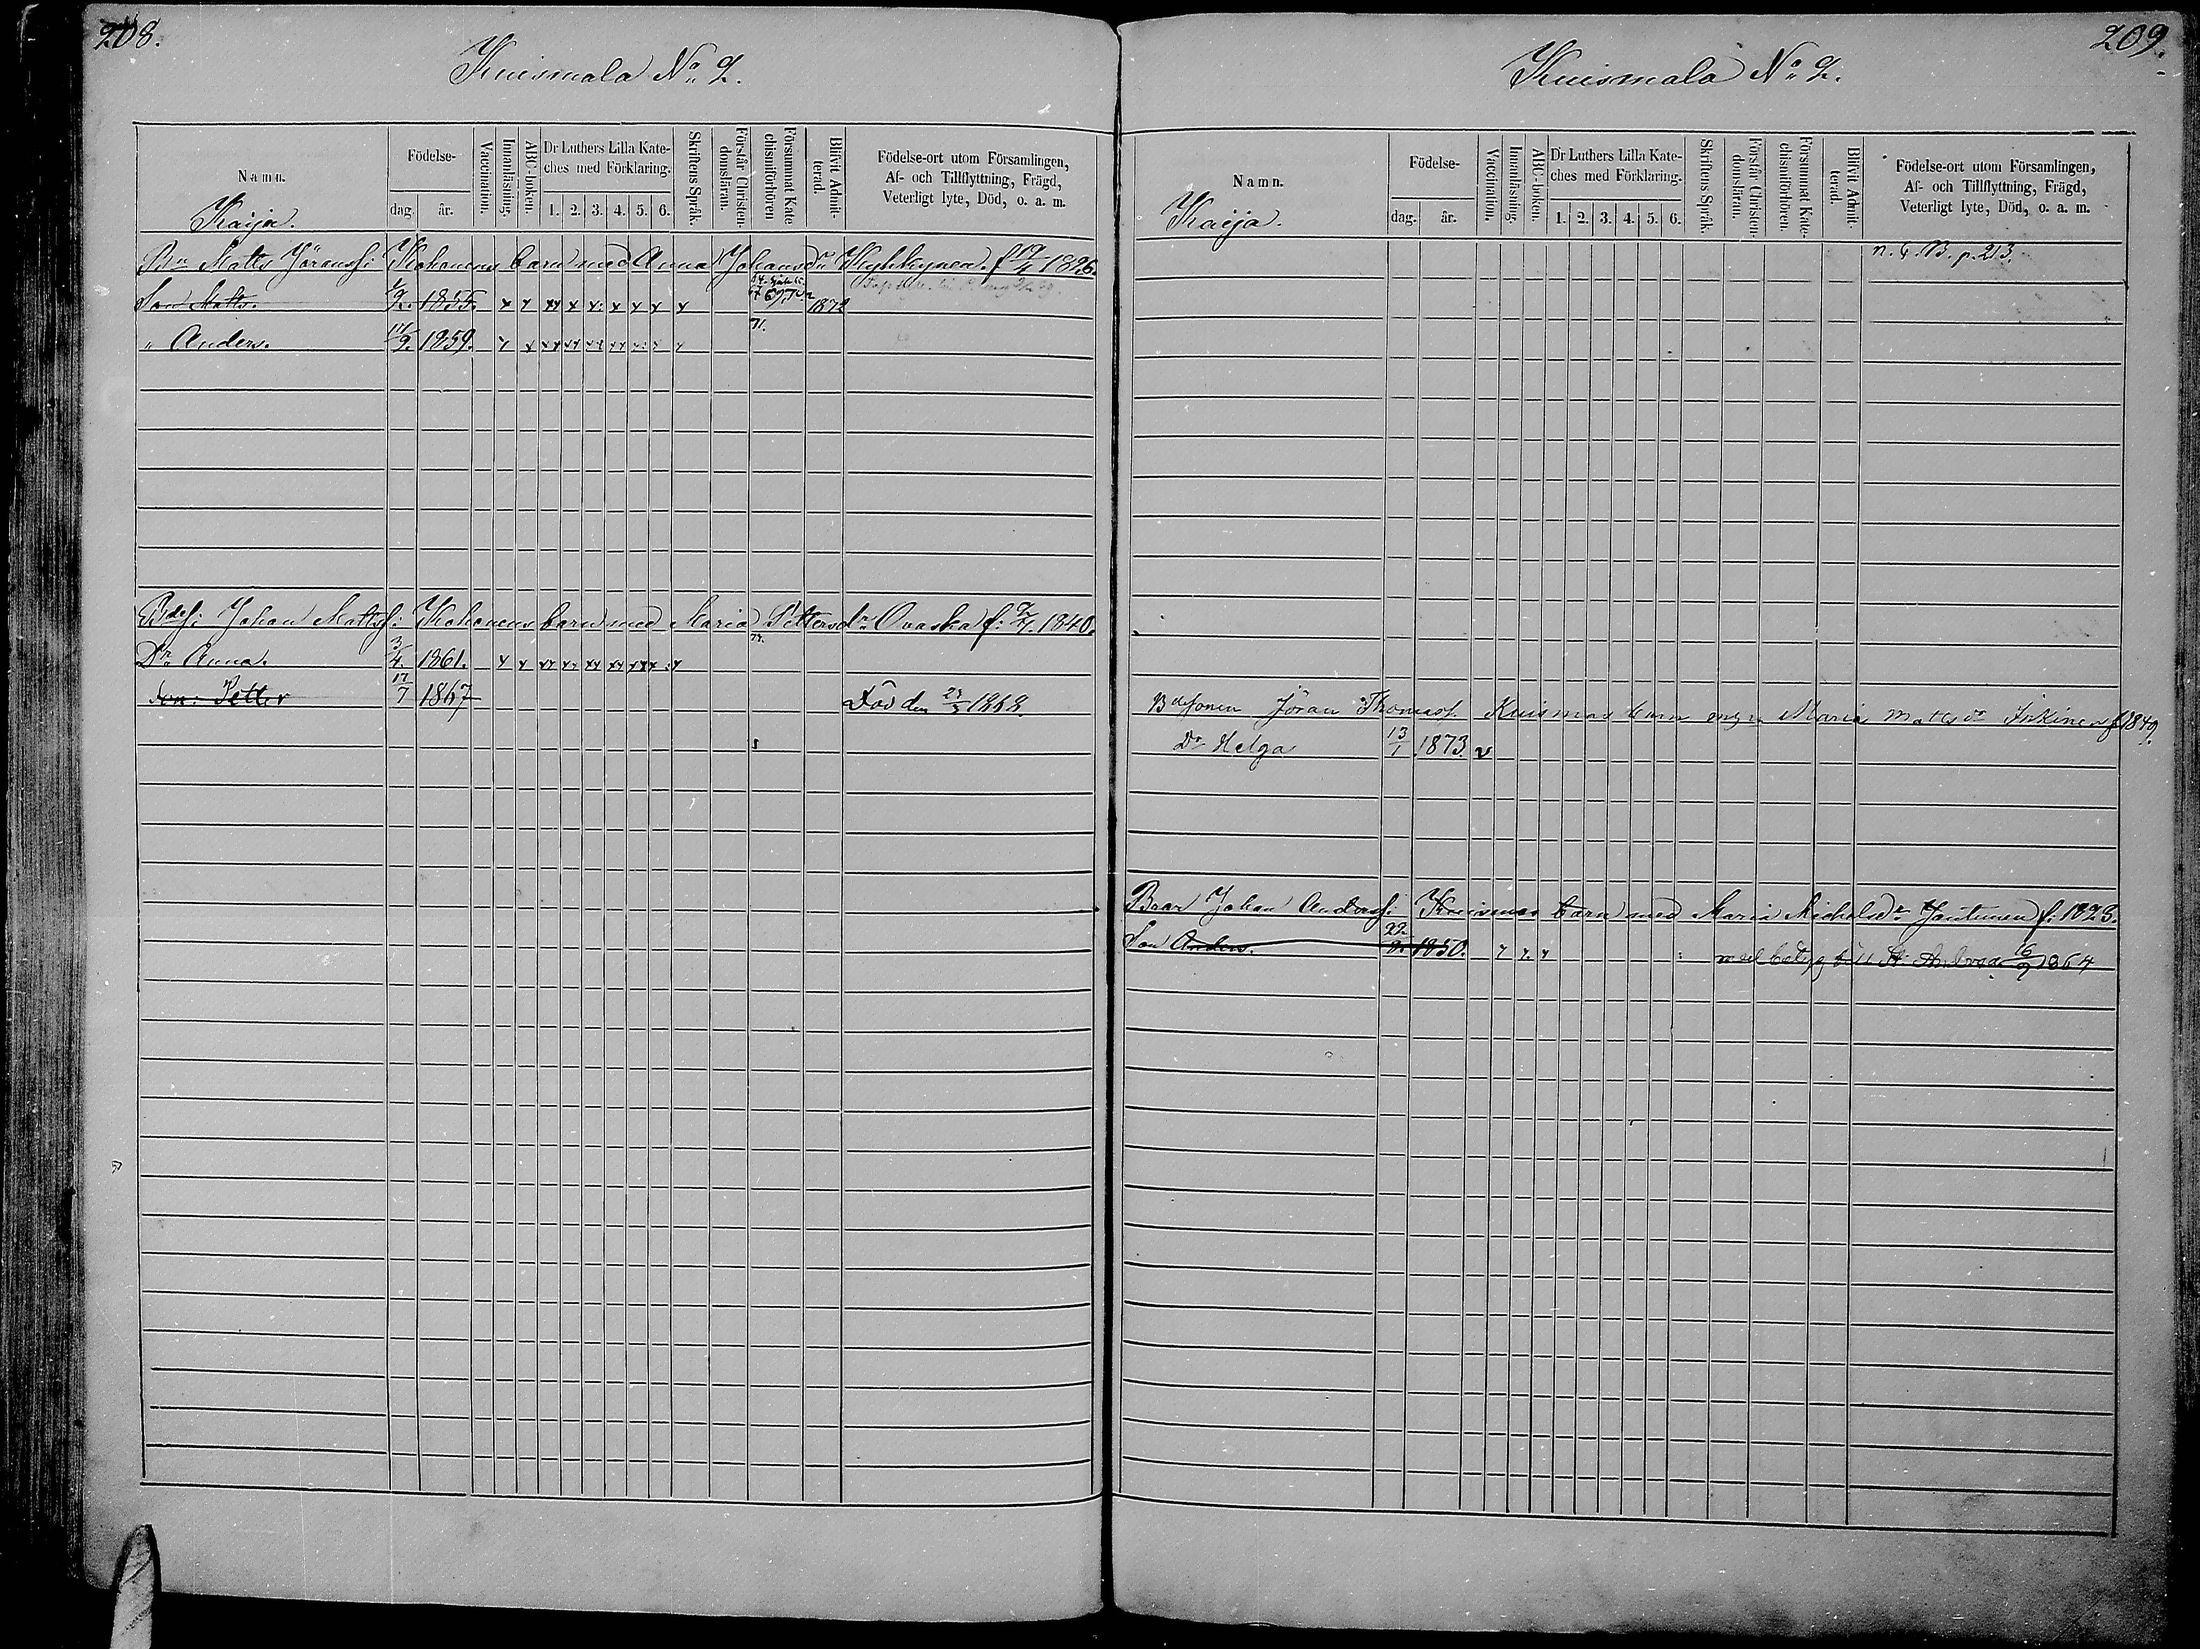 208.
Kuismala No 2.
Namn.
Födelse-
dag. år.
Vaccination.
Innanläsning.
ABC-boken.
Dr Luthers Lilla Kate-
ches med Förklaring.
1. 2. 3. 4. 5. 6.
Skriftens Språk.
Förstår Christen-
domsläran.
Försummat Kate
chismiförhören
Blifvit Admit-
terad.
Födelse-ort utom Församlingen,
Af- och Tillflyttning, Frägd,
Veterligt lyte, Död, o. a. m.
Kaija.
Bn Matts Jöranss: Kohonens barn med Anna Johansdr Kykkynen. f 19/4 1826.
Son Matts. 1855. 1872
" Anders. 11/9. 1859. 71.
Bdes: Johan Mattss: Kohonens barn med Maria Pettersdr Ovaska f: 2/7. 1840.
Dr Anna. 3/4. 1861.
Son: Petter 17/7 1867 Död den 1868.
209.
Kuismala No 2.
Namn.
Födelse-
dag. år.
Vaccination.
Innanläsning.
ABC-boken.
Dr Luthers Lilla Kate-
ches med Förklaring.
1. 2. 3. 4. 5. 6.
Skriftens Språk.
Förstår Christen-
domsläran.
Försummat Kate-
chismiförhören.
Blifvit Admit-
terad.
Födelse-ort utom Församlingen,
Af- och Tillflyttning, Frägd,
Veterligt lyte, Död, o. a. m.
Kaija.
n. G. B. p. 213.
Bdesonen Jöran Thomass. Kuismas barn m Maria Mattsdr Inkinen f 1849.
Dr Helga 13/1 1873. v
Broar Johan Anderss: Kuismas barn med Maria Michelsdr Jantunen f: 1823.
Son Anders. 22/2. 1850. med betyg till St. Andrea 16/9 1864